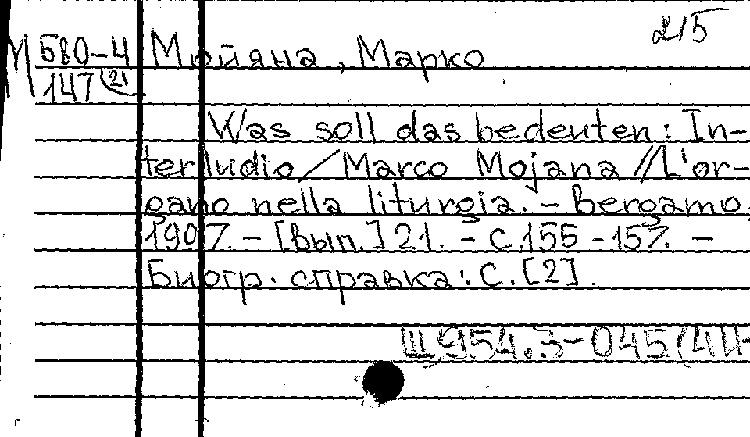 215
М 580-4 Мойяна, Марко
147 (2)
Was soll das bedeuten: In-
terludio/Marco Mojana//L'or-
gano nella liturgia. - Bergamo,
1907. - [вып.] 21. - С.155-157. -
Биогр. справка: С. [2].
Щ954.3-045(4И